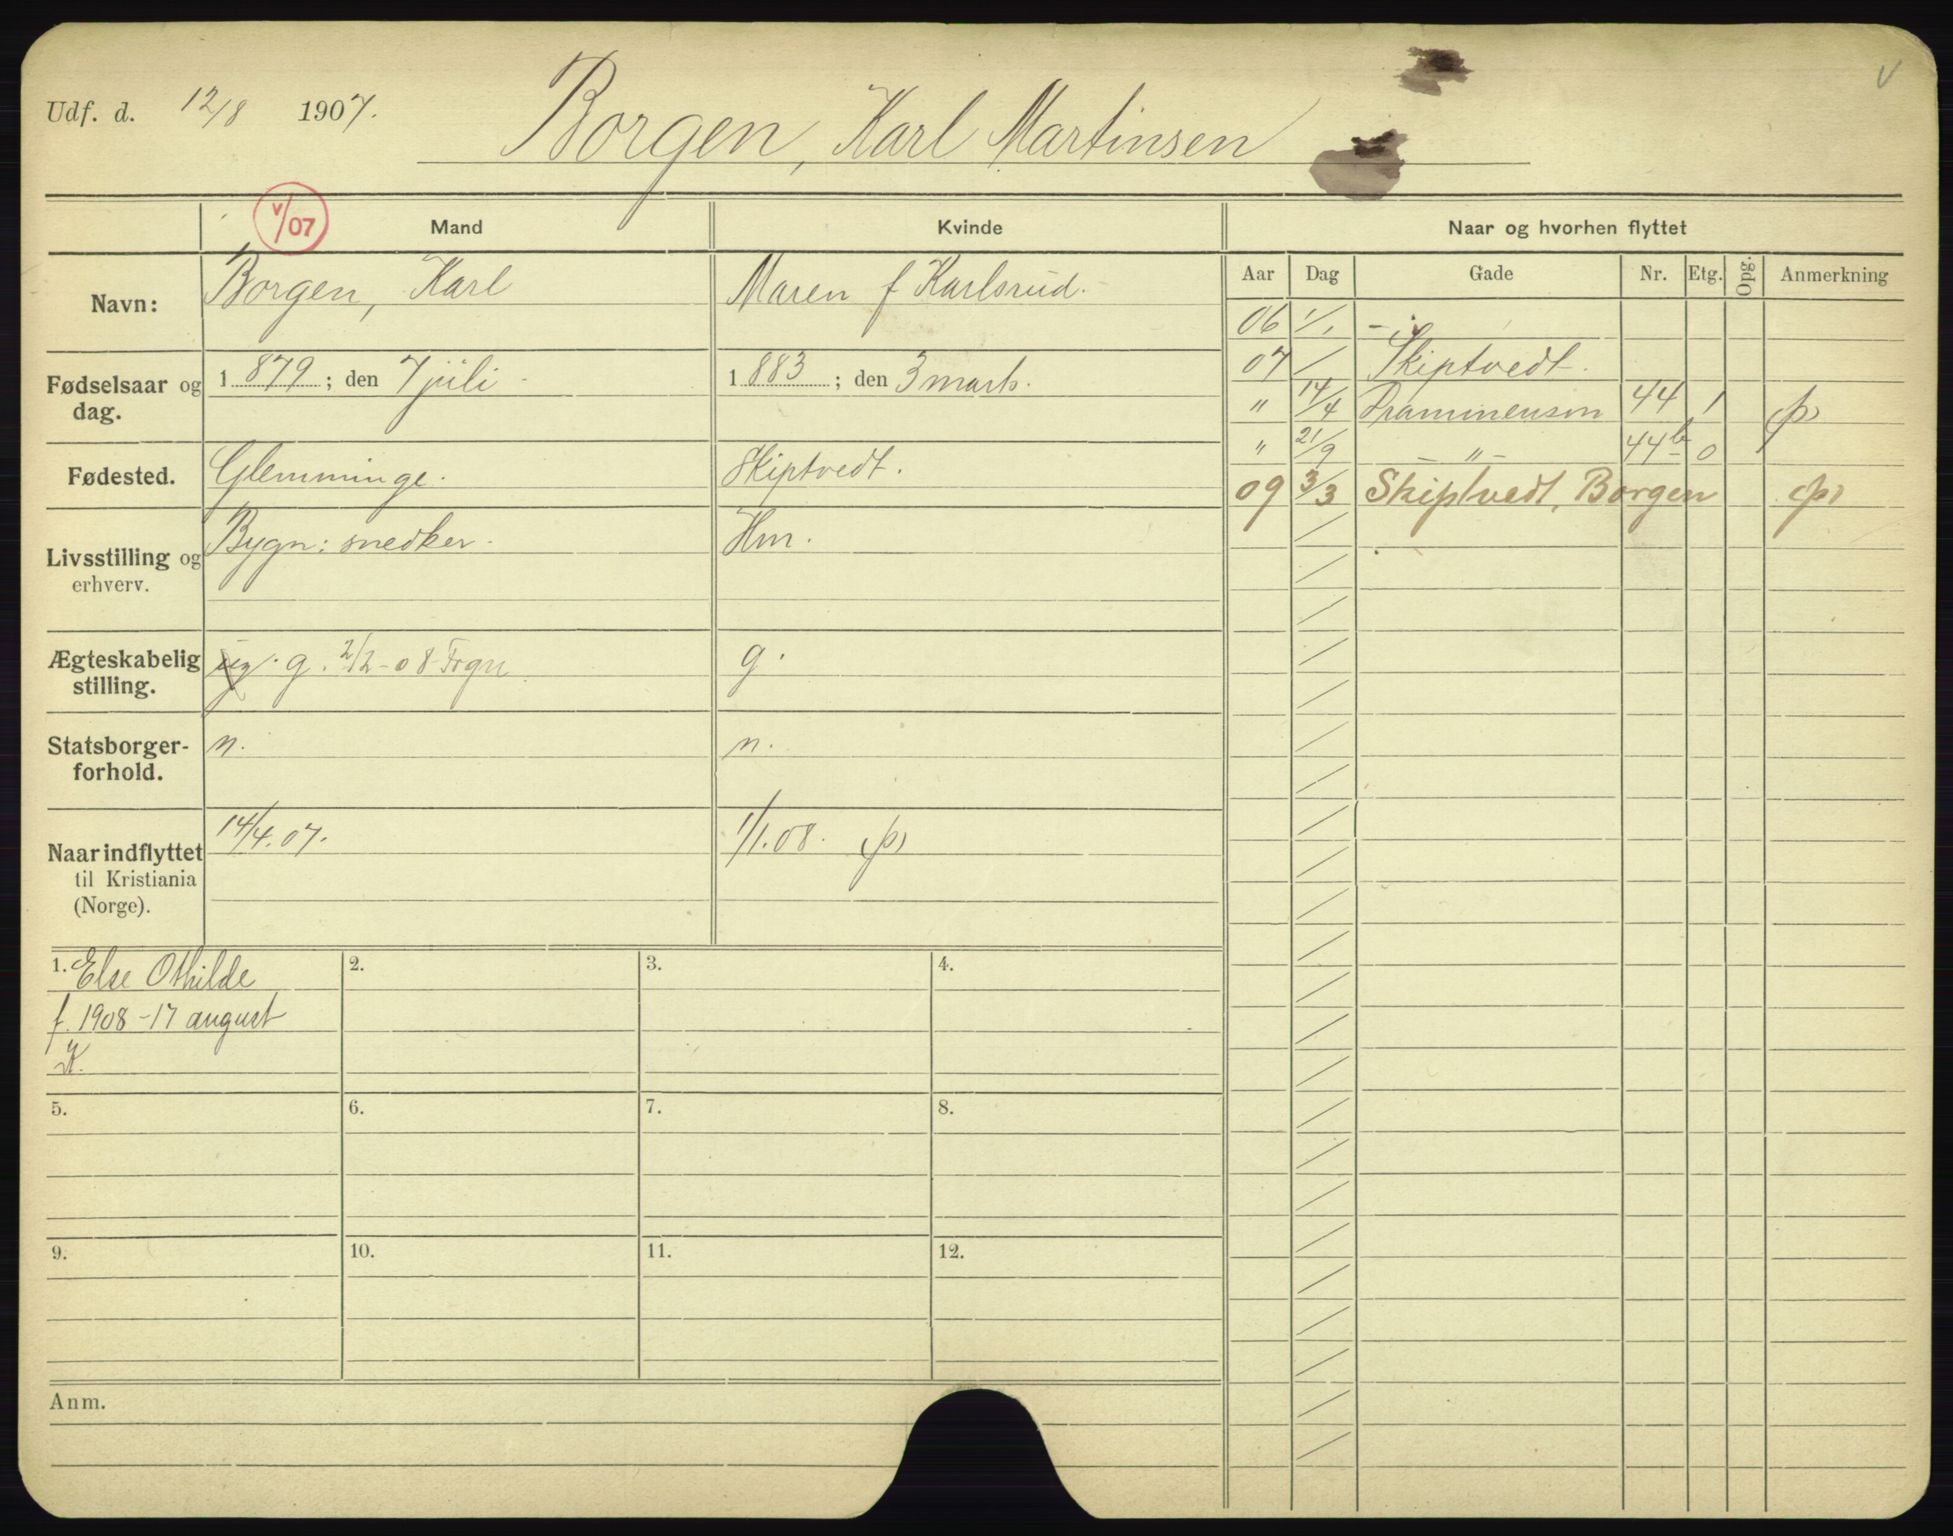 Udf. d. 12/8 1907.
Borgen, Karl Martinsen
v
v/07
Mand Kvinde Naar og hvorhen flyttet
Aar Dag Gade Nr. Etg. Opg. Anmerkning
Navn: Borgen, Karl Maren f Karlsrud.
Fødselsaar og dag. 1879; den 7 juli 1883; den 3 marts.
Fødested. Glemminge. Skiptvedt.
Livsstilling og erhverv. Bygn: snedker. Hm.
Ægteskabelig stilling. ug. g. 2/2-08 Frgn. g.
Statsborgerforhold. n. n.
Naar indflyttet til Kristiania (Norge). 14/4.07. 1/1.08. (p)
06 1/1 -
07 / Skiptvedt.
" 14/4 Drammensvn 44 1 (p)
" 21/9 -"- 44b 0
09 3/3 Skiptvedt, Borgen (p)
1. Else Othilde
f. 1908-17 august
K.
2.
3.
4.
5.
6.
7.
8.
9.
10.
11.
12.
Anm.